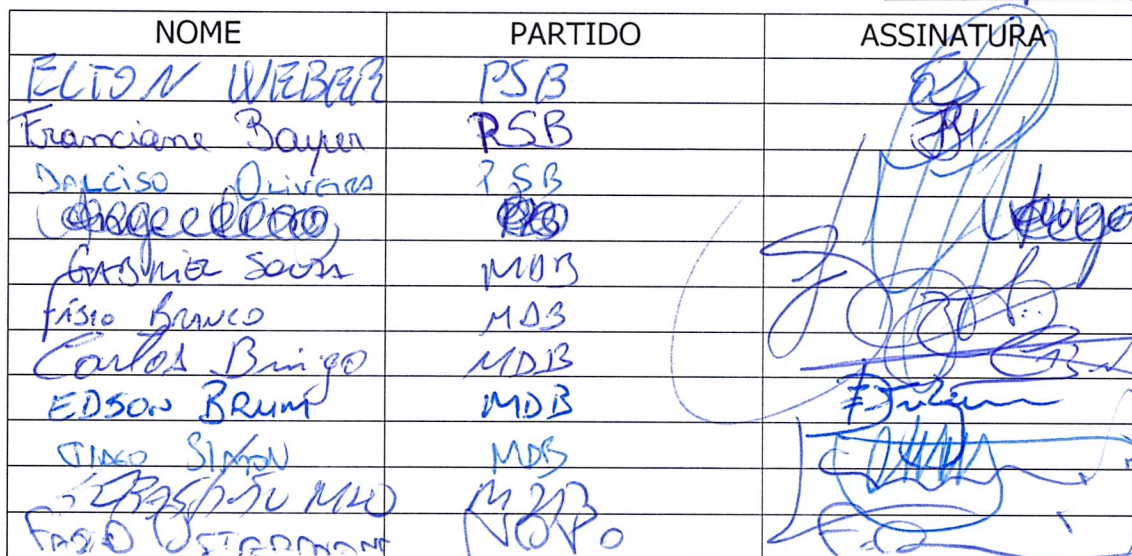 NOME PARTIDO ASSINATURA
ELTON WEBER PSB
Franciane Bayer PSB
DALCISO OLIVEIRA PSB
GABRIEL SOUZA MDB
FÁBIO BRANCO MDB
Carlos Búrigo MDB
EDSON BRUM MDB
TIAGO SIMON MDB
SEBASTIÃO MELO MDB
FÁBIO OSTERMANN NOVO